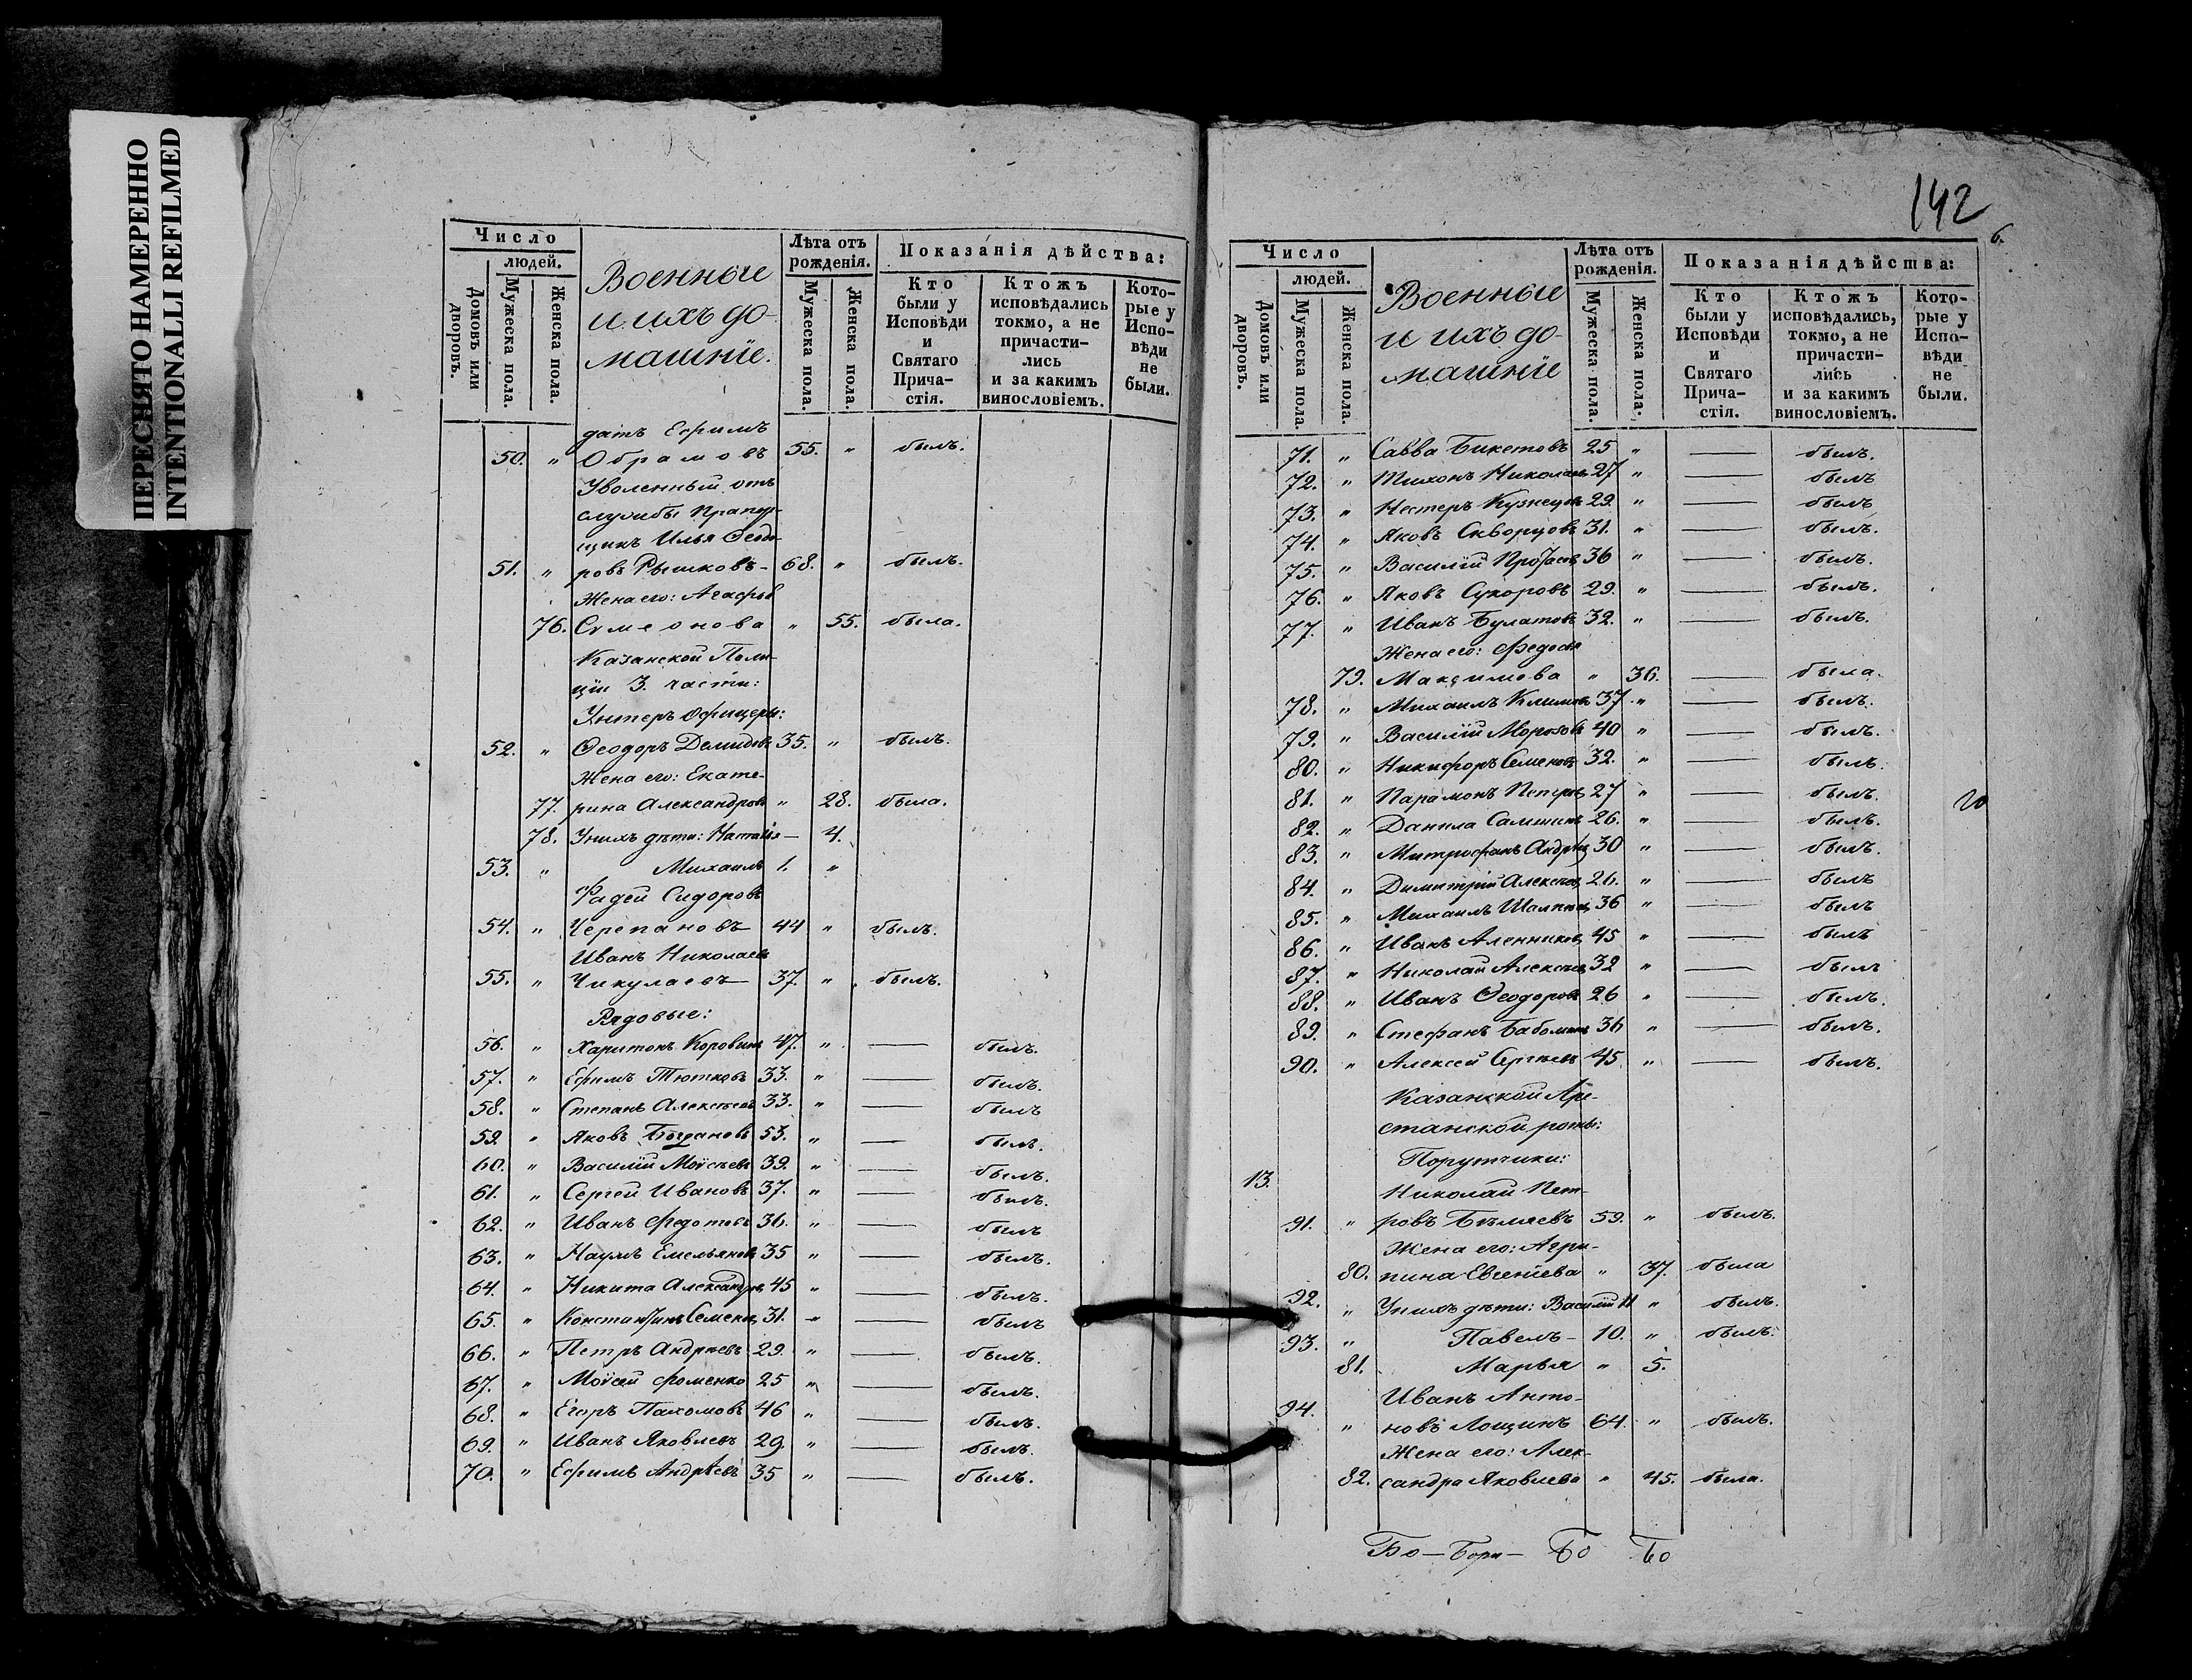 ПЕРЕСНЯТО НАМЕРЕННО
INTENTIONALLI REFILMED
Число
людей.
Домовъ или дворовъ.
Мужеска пола.
Женска пола.
Военные
и ихъ до-
машнїе.
Лѣта отъ
рожденія.
Мужеска пола.
Женска пола.
Показанія дѣйства:
Кто
были у
Исповѣди
и
Святаго
Прича-
стія.
Ктожъ
исповѣдались
токмо, а не
причасти-
лись
и за какимъ
винословіемъ.
Кото-
рые у
Испо-
вѣди
не
были.
датъ Ефимъ
50. " Обрамовъ 55. " былъ.
Уволенный отъ
службы Прапор-
щикъ Илья Ѳеодо-
51. " ровъ Рышковъ - 68. " былъ.
Жена его: Агафья
76. Сѵмеонова " 55. была.
Казанской Поли-
цїи 3. части:
Унтеръ Офицеры:
52. " Ѳеодоръ Демидовъ 35. " былъ.
Жена его: Екате-
77. рина Александрова " 28. была.
78. Унихъ дѣти: Наталія — 4.
53. " Михаилъ 1. "
Фадей Сидоровъ
54. " Черепановъ 44 " былъ.
Иванъ Николаевъ
55. " Чикулаевъ 37. " былъ.
Рядовые:
56. " Харитонъ Коровинъ 47. " — былъ.
57. " Ефимъ Тютковъ 33. " — былъ.
58. " Степанъ Алексѣевъ 33. " — былъ
59. " Яковъ Богдановъ 53. " — былъ.
60. " Василїй Моѵсѣевъ 39. " — былъ.
61. " Сергей Ивановъ 37. " — былъ.
62. " Иванъ Федотовъ 36. " — былъ
63. " Наумъ Емельяновъ 35 " — былъ.
64. " Никита Александровъ 45 " — былъ.
65. " Константинъ Семеновъ 31. " — былъ
66. " Петръ Андреевъ 29. " — былъ.
67. " Моѵсей Фоменко 25 " — былъ.
68. " Егоръ Пахомовъ 46 " — былъ.
69. " Иванъ Яковлевъ 29. " — былъ.
70. " Ефимъ Андрѣевъ 35 " — былъ.
142
6.
Число
людей.
Домовъ или дворовъ.
Мужеска пола.
Женска пола.
Военные
и ихъ до-
машнїе
Лѣта отъ
рожденія.
Мужеска пола.
Женска пола.
Показанія дѣйства:
Кто
были у
Исповѣди
и
Святаго
Прича-
стія.
Ктожъ
исповѣдались,
токмо, а не
причасти-
лись
и за какимъ
винословіемъ.
Кото-
рые у
Испо-
вѣди
не
были.
71. " Савва Бикетовъ 25 " — былъ.
72. " Тихонъ Николаевъ 27 " — былъ
73. " Нестеръ Кузнецовъ 29. " — былъ
74. " Яковъ Скворцовъ 31. " — былъ.
75. " Василїй 36 " — былъ.
76. " Яковъ Сукоровъ 29. " — былъ.
77. " Иванъ Булатовъ 32. " — былъ.
Жена его: Федосья
79. Максимова " 36. — была.
78. " Михаилъ Климовъ 37 " — былъ.
79. " Василїй Морозовъ 40 " — былъ.
80. " Никифоръ Семеновъ 32. " — былъ.
81. " Парамонъ Петровъ 27 " — былъ.
20
82. " Данила 26. " — былъ.
83. " Митрофанъ Андрѣевъ 30 " — былъ.
84. " Димитрїй Алексѣевъ 26. " — былъ
85. " Михаилъ 36 " — былъ
86. " Иванъ Аленниковъ 45 " — былъ
87. " Николай Алексѣевъ 32 " — былъ
88. " Иванъ Ѳеодоровъ 26 " — былъ.
89. " Стефанъ 36 " — былъ.
90. " Алексей Сергѣевъ 45 " — былъ.
Казанской Аре-
станской роты:
Порутчики:
13. Николай Пет-
91. " ровъ Бѣляевъ 59. " былъ.
Жена его: Агри-
80. пина Евгенїева " 37. была
92. " Унихъ дѣти: Василїй 11 " былъ.
93. " Павелъ - 10. " былъ.
81. Марья " 5.
Иванъ Анто-
94. " новъ Лощинъ 64. " былъ.
Жена его: Алек-
82. сандра Яковлева " 45. была.